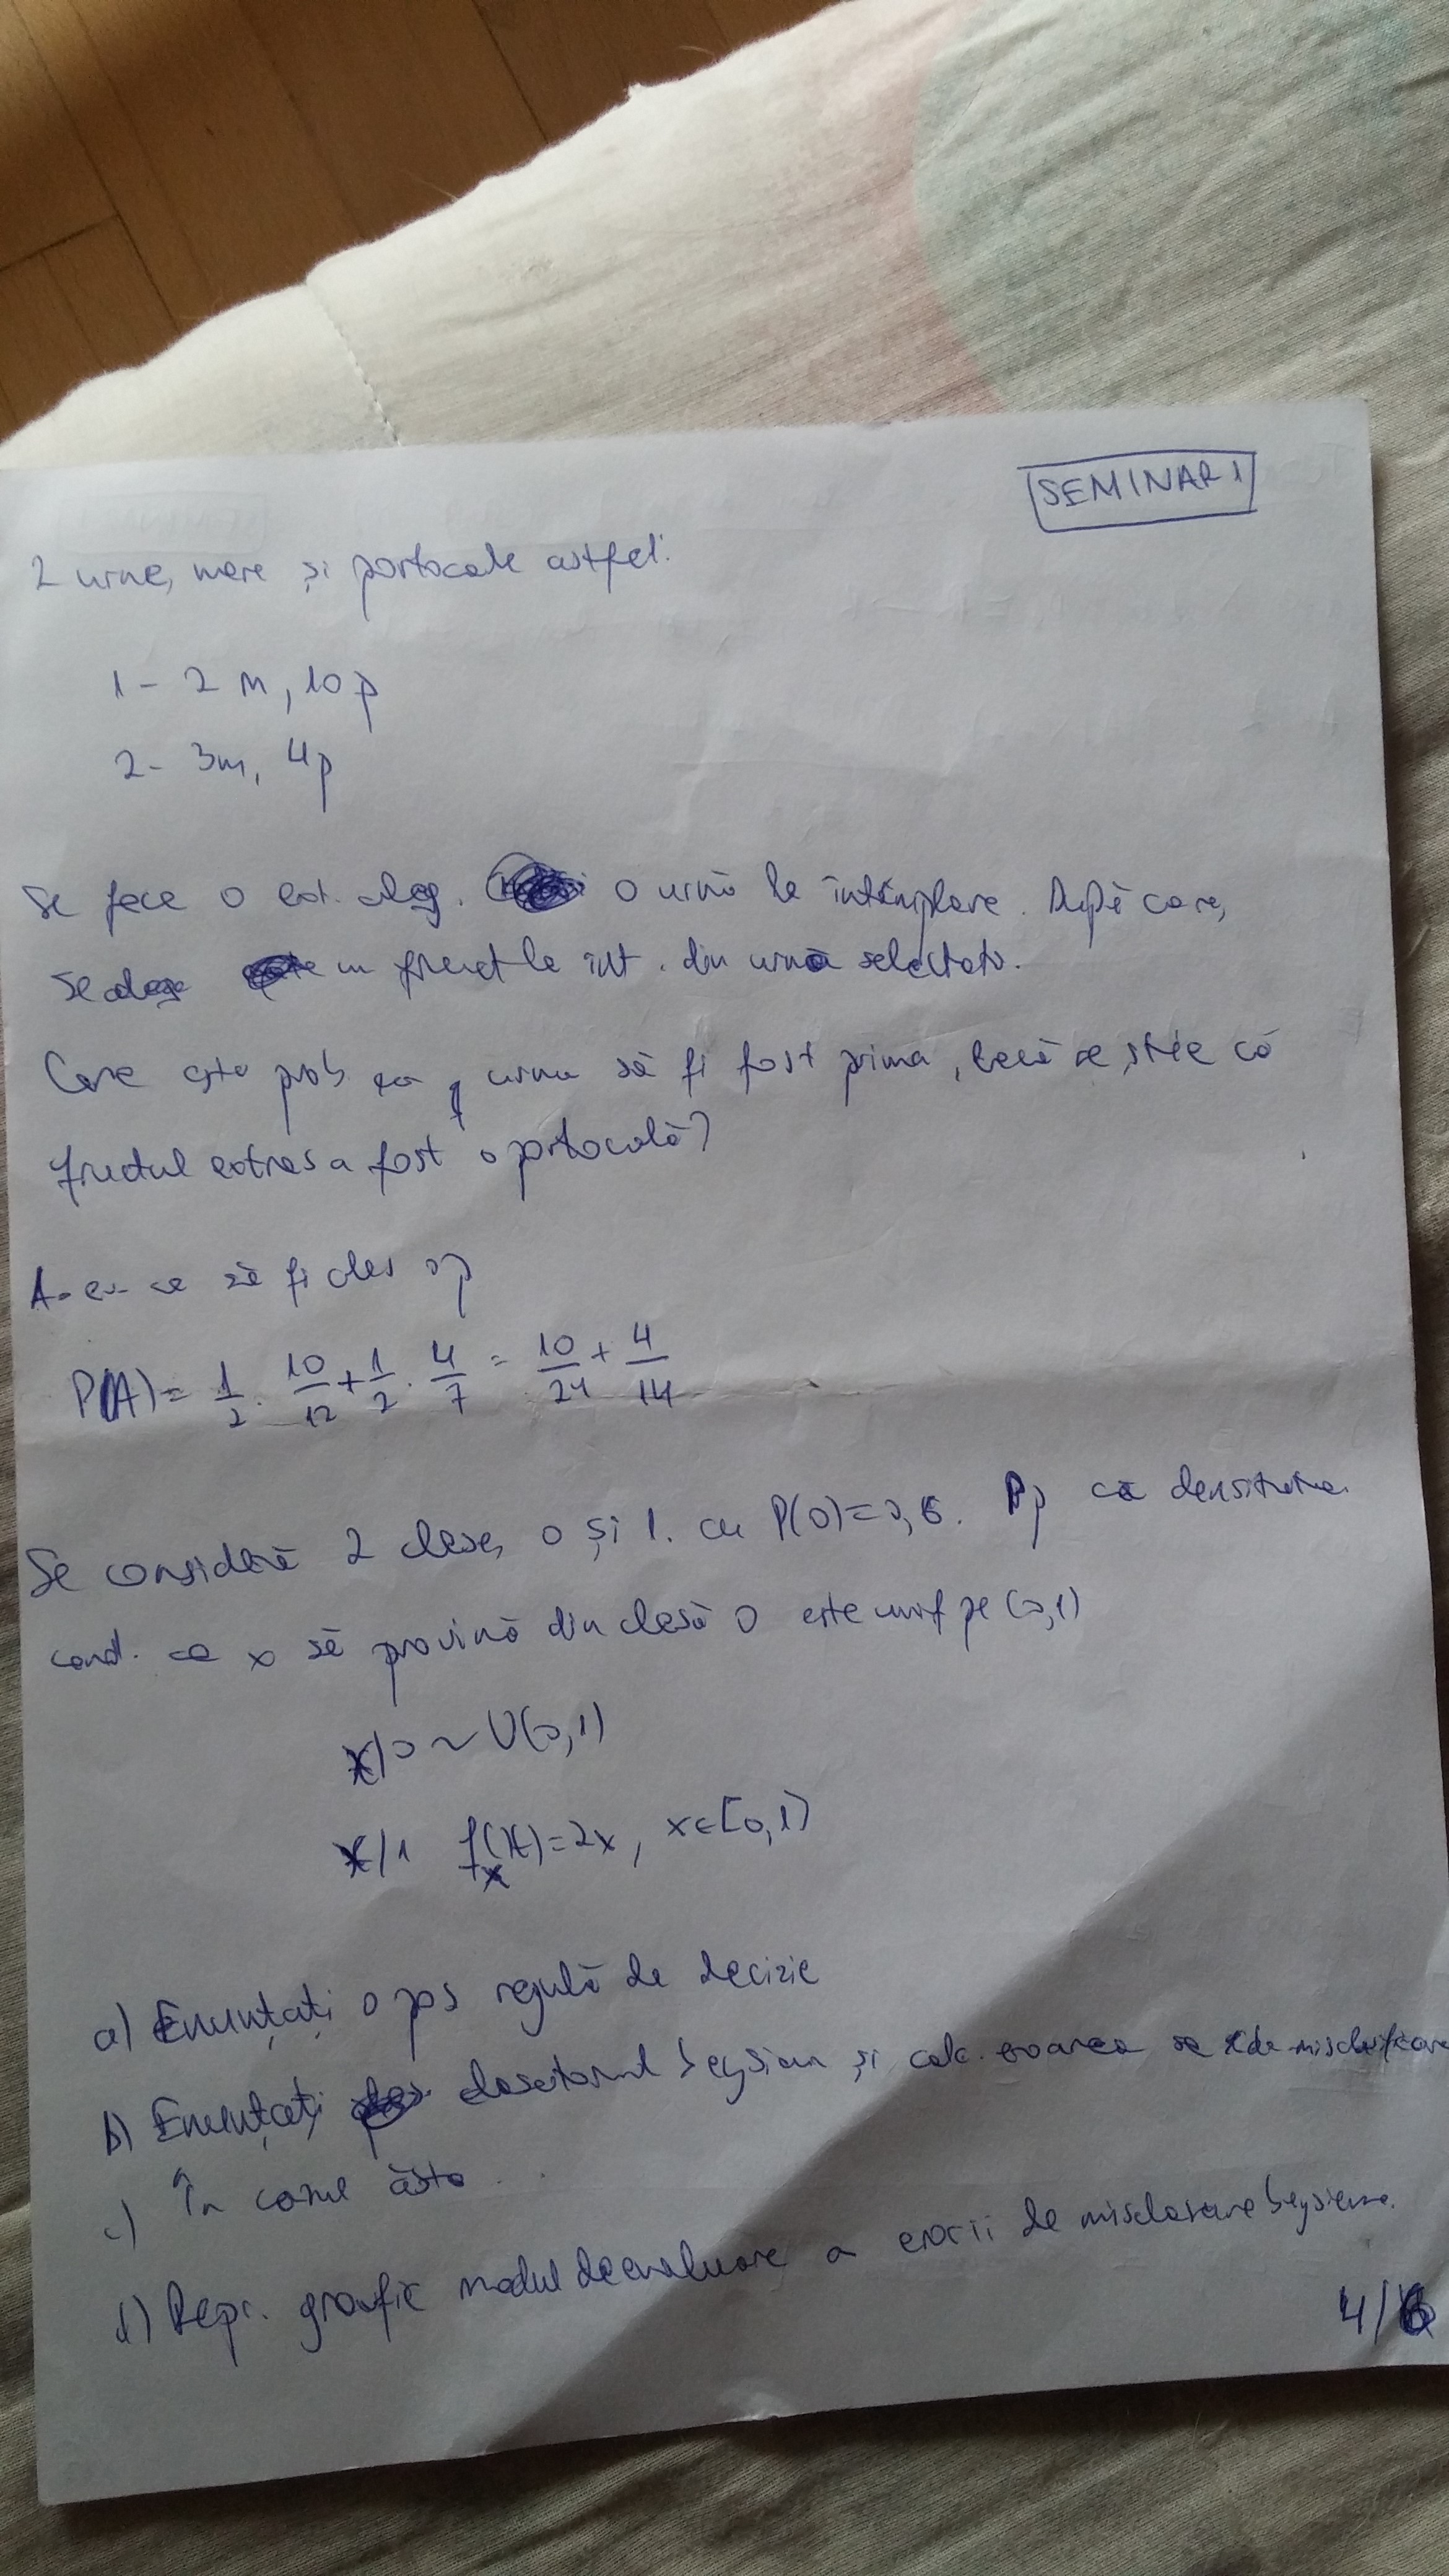 SEMINAR 1
2 urne, mere și portocale astfel:
1 - 2 m, 10 p
2 - 3m, 4p
Se face o ext. aleg. o urnă la întâmplare. După care,
se alege un fruct la înt. din urna selectată.
Care este prob ca urna să fi fost prima, dacă se știe că
fructul extras a fost o portocală?
A - ev. ca să fi ales o p
P(A) = 1/2 · 10/12 + 1/2 · 4/7 = 10/24 + 4/14
Se consideră 2 clase, 0 și 1. cu P(0)=0,6. Pp că densitatea
cond. ca x să provină din clasa 0 este unif pe (0,1)
x/0 ~ U(0,1)
x/1 f_x(x)=2x, x∈[0,1)
a) Enunțați o pos regulă de decizie
b) Enunțați clasificatorul bayesian și calc. eroarea de misclasificare
c) În cazul ăsta . .
d) Repr. grafic modul de evaluare a erorii de misclasare bayesiene.
4/6